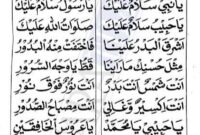 يَا نَبِي سَلَامٌ عَلَيْكَ يَا رَسُولْ سَلَامٌ عَلَيْكَ
يَا حَبِيبْ سَلَامٌ عَلَيْكَ صَلَوَاتُ اللهِ عَلَيْكَ
أَشْرَقَ الْبَدْرُ عَلَيْنَا فَاخْتَفَتْ مِنْهُ الْبُدُورُ
مِثْلَ حُسْنِكْ مَا رَأَيْنَا قَطُّ يَا وَجْهَ السُّرُورِ
أَنْتَ شَمْسٌ أَنْتَ بَدْرٌ أَنْتَ نُورٌ فَوْقَ نُورِ
أَنْتَ إِكْسِيرٌ وَغَالِي أَنْتَ مِصْبَاحُ الصُّدُورِ
يَا حَبِيبِي يَا مُحَمَّدْ يَا عَرُوسَ الْخَافِقَيْنِ